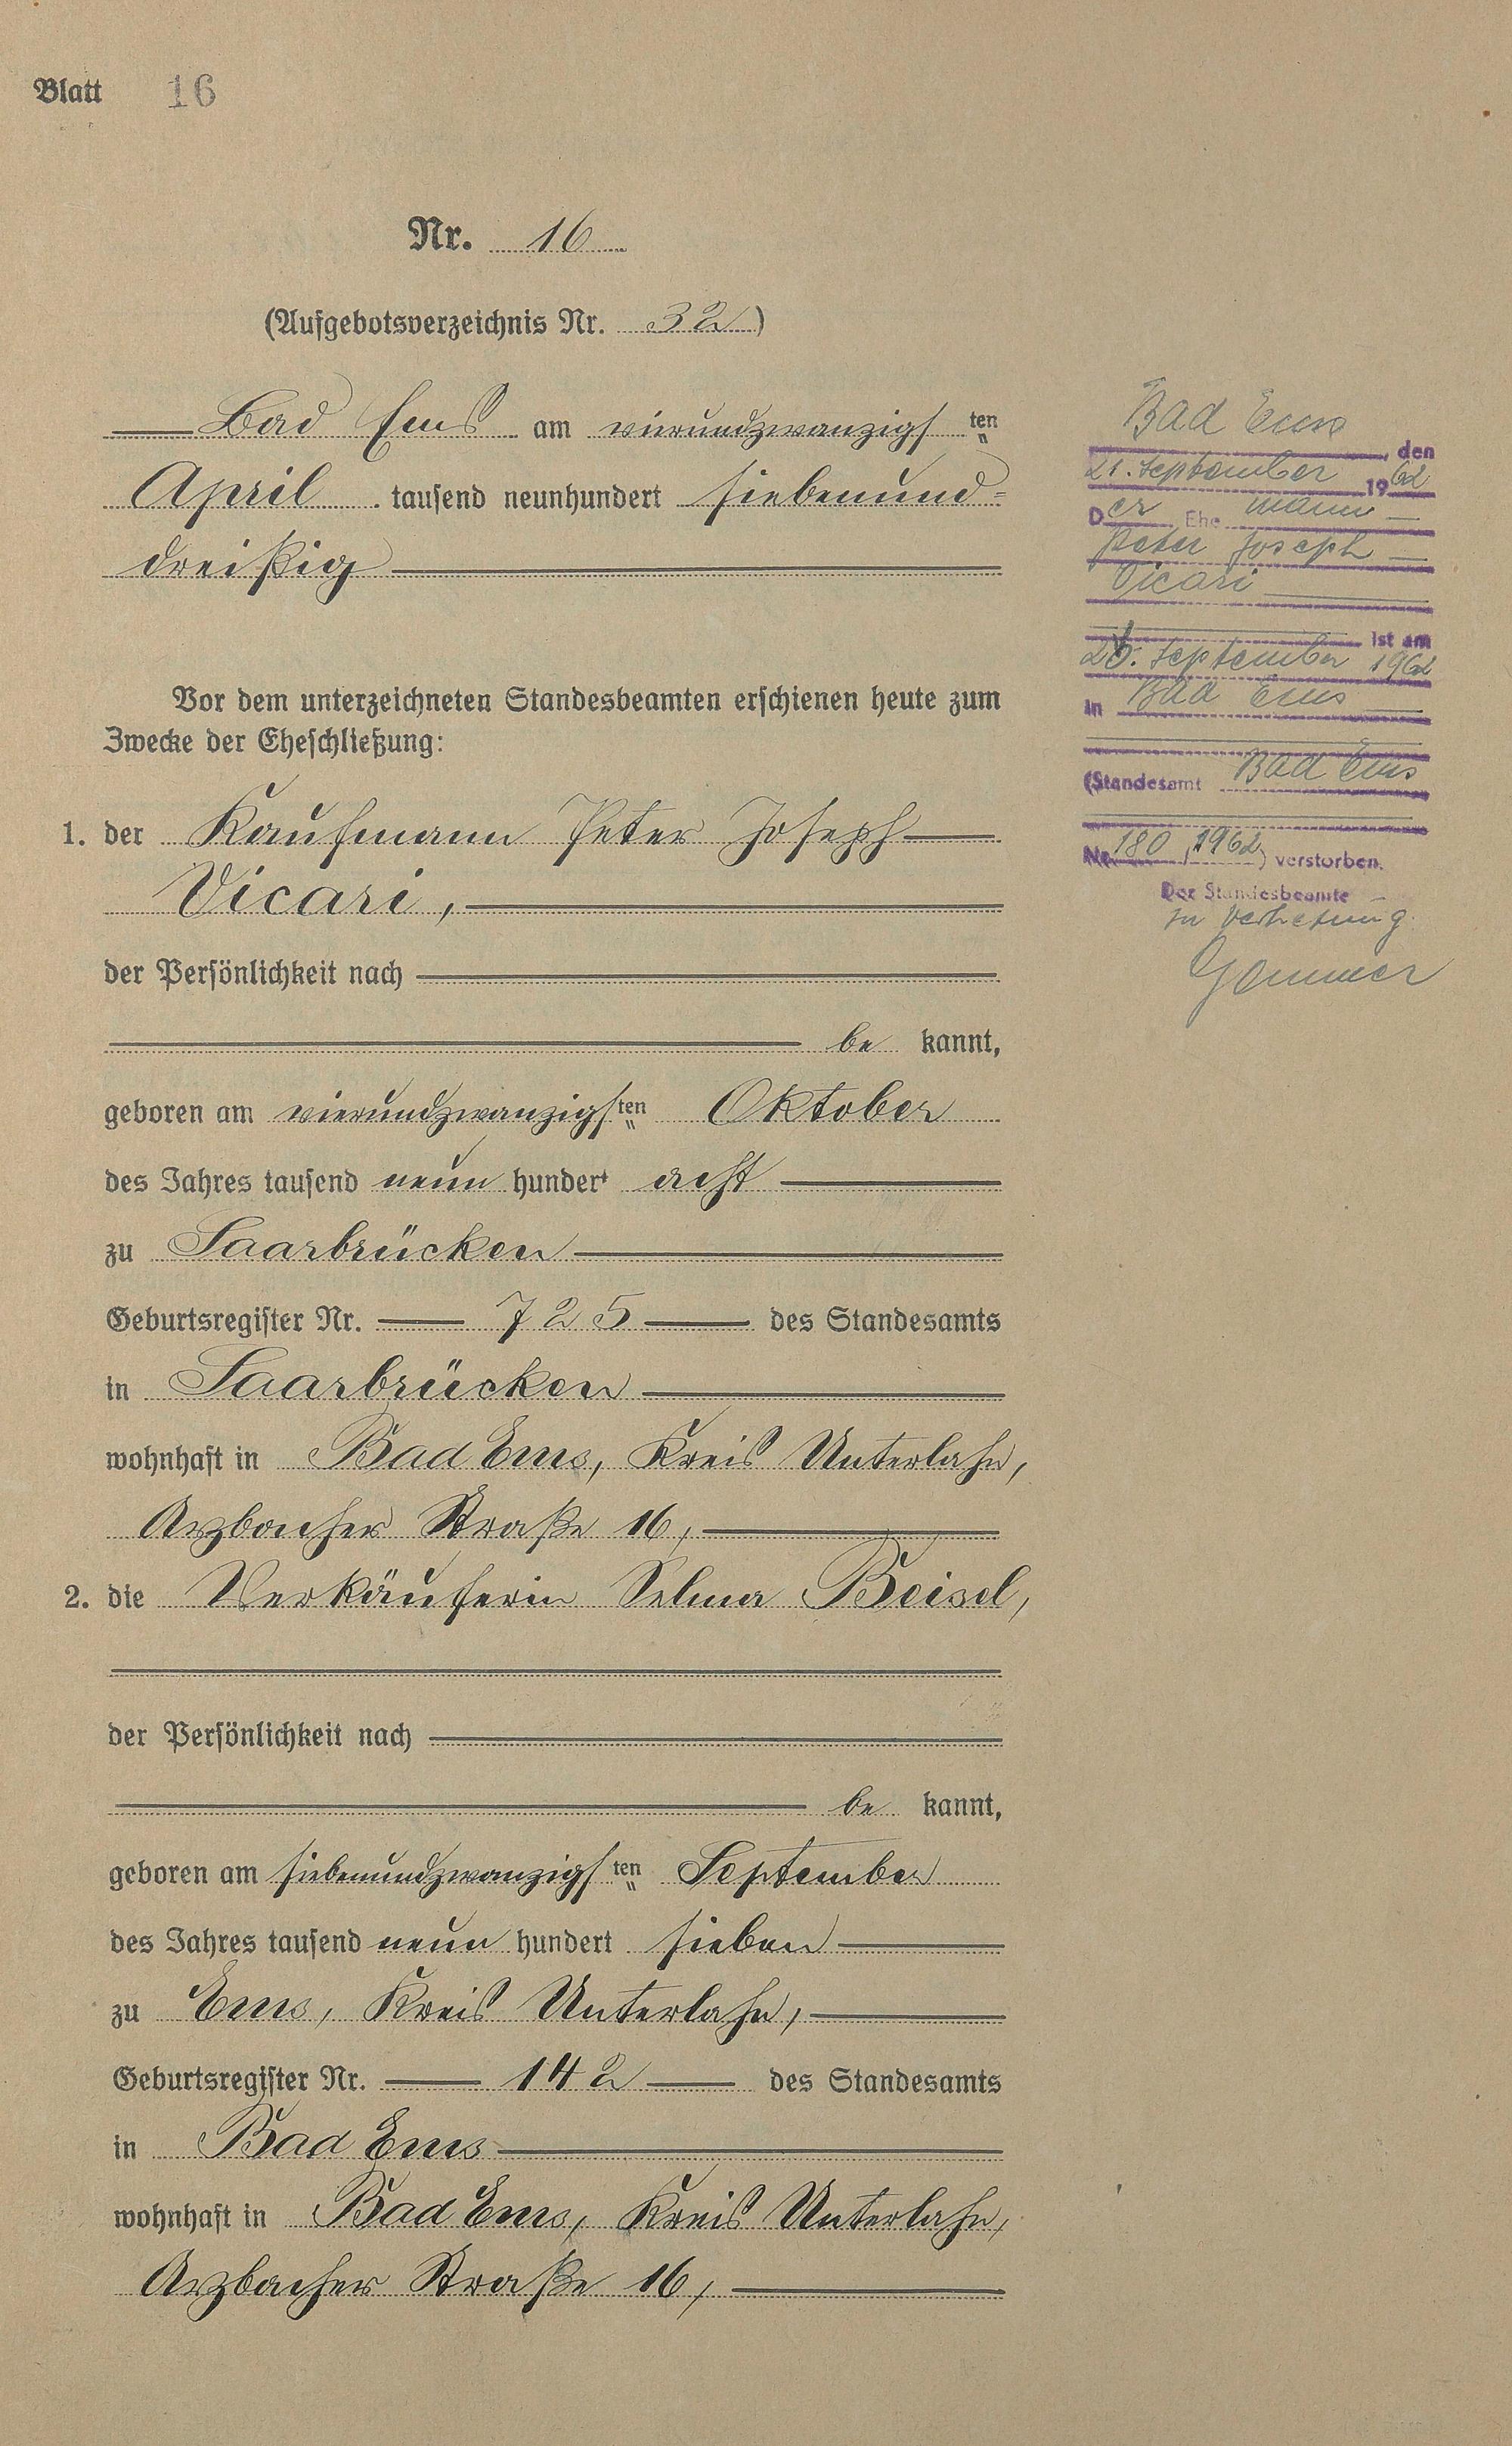 Blatt 16
Nr. 16
(Aufgebotsverzeichnis Nr. 32)
Bad Ems am vierundzwanzigsten
April tausend neunhundert siebenund=
dreißig
Vor dem unterzeichneten Standesbeamten erschienen heute zum
Zwecke der Eheschließung:
1. der Kaufmann Peter Joseph
Vicari,
der Persönlichkeit nach
be kannt,
geboren am vierundzwanzigsten Oktober
des Jahres tausend neun hundert acht
zu Saarbrücken
Geburtsregister Nr. 725 des Standesamts
in Saarbrücken
wohnhaft in Bad Ems, Kreis Unterlahn,
Arzbacher Straße 16,
2. die Verkäuferin Selma Beisel,
der Persönlichkeit nach
be kannt,
geboren am siebenundzwanzigsten September
des Jahres tausend neun hundert sieben
zu Ems, Kreis Unterlahn,
Geburtsregister Nr. 142 des Standesamts
in Bad Ems
wohnhaft in Bad Ems, Kreis Unterlahn,
Arzbacher Straße 16,
Bad Ems, den
21. September 1962
Der Ehemann
Peter Joseph
Vicari
ist am
September 1962
in Bad Ems
(Standesamt Bad Ems
Nr. 180/1962) verstorben.
Der Standesbeamte
In Vertretung